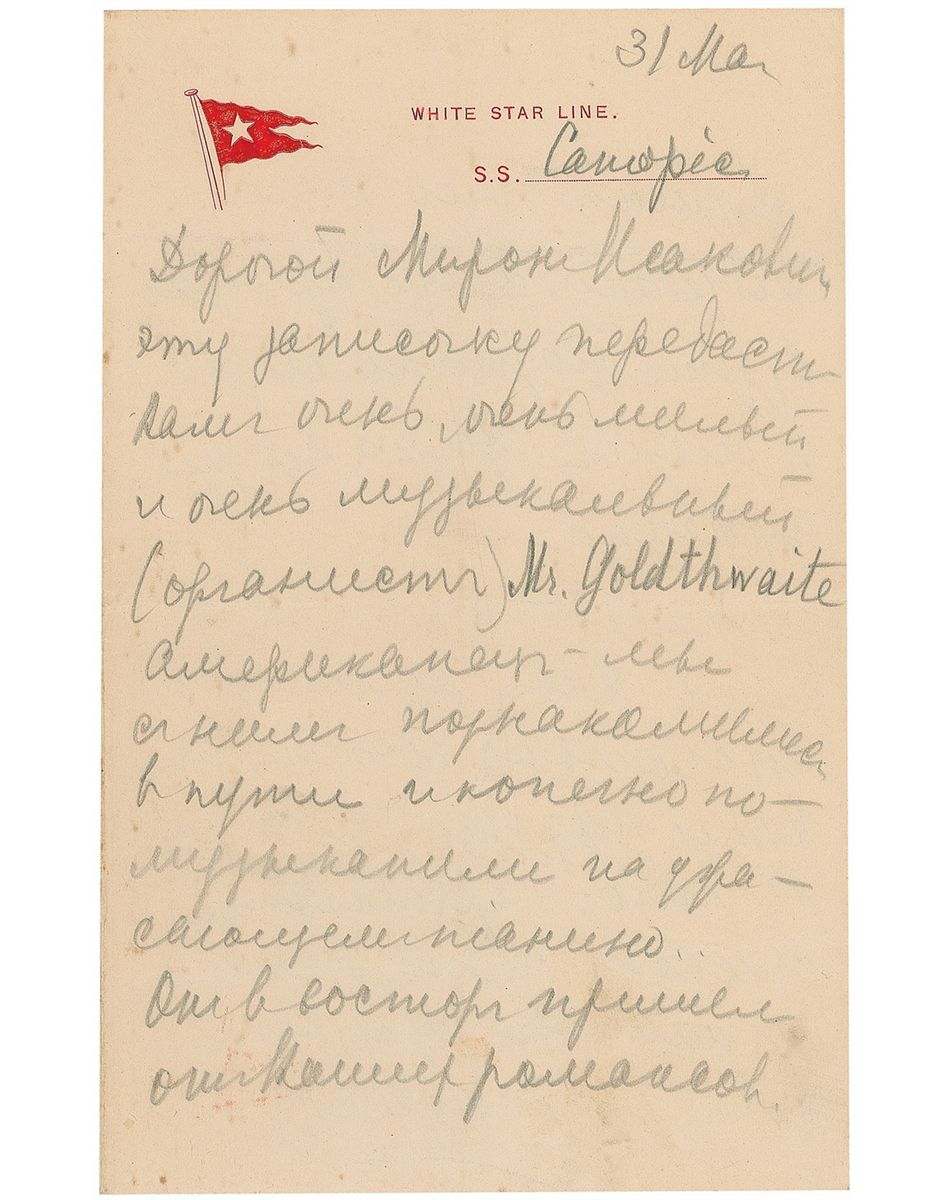 31 Mar
WHITE STAR LINE.
S.S. Canopic
Дорогой Мирон Исакович,
эту записочку передаст
Вамъ очень, очень милый
и очень музыкальный
(органистъ) Mr. Goldthwaite
американецъ – мы
с нимъ познакомились
в пути и конечно по–
музыканили на ужа–
сающемъ пианино..
Онъ в восторг пришел
от Ваших романсов.